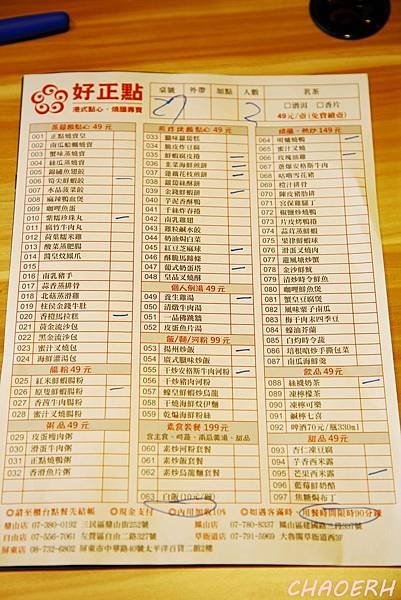 好正點
港式點心、燒臘專賣
桌號 外帶 加點 人數 茗茶
27 2 □香片
49元/壺(免費續壺)
蒸籠類點心 49 元
001 正點燒賣皇
002 南瓜鮑鱔燒賣
003 蟹味蒸燒賣
004 絲瓜蒸燒賣
005 錦繡魚翅餃
006 筍尖鮮蝦餃
007 水晶菠菜餃
008 麻辣鴨血煲
009 咖哩魚蛋
010 紫糯珍珠丸
011 腐竹牛肉丸
012 荷葉糯米雞
013 酸菜蒸肥腸
014 醬皇炆鳳爪
015
016 南乳豬手
017 蒜香蒸排骨
018 北菇蒸滑雞
019 柱侯金錢牛肚
020 香橙馬拉糕
021 黃金流沙包
022 黑金流沙包
023 蜜汁叉燒包
024 海鮮灌湯包
腸粉 49元
025 紅米鮮蝦腸粉
026 原隻鮮蝦腸粉
027 香茜牛肉腸粉
028 蜜汁叉燒腸粉
粥品 49 元
029 皮蛋瘦肉粥
030 滑蛋牛肉粥
031 正點燒鴨粥
032 香滑魚片粥
煎炸烘類點心 49 元
033 臘味蘿蔔糕
034 脆皮炸豆腐
035 鮮蝦腐皮捲
036 韭菜海鮮煎餅
037 蓮藕花枝煎餅
038 蘿蔔絲酥餅
039 金錢鮮蝦餅
040 芋泥香酥鴨
041 千絲炸春捲
042 南乳雞翅
043 雞粒鹹水餃
044 奶油焗白菜
045 紅豆芝麻球
046 酥脆馬蹄條
047 葡式奶蛋塔
048 皇品叉燒酥
個人例湯 49元
049 養生雞湯
050 清燉牛肉湯
051 一品佛跳牆
052 皮蛋魚片湯
飯/麵/河粉 99 元
053 揚州炒飯
054 廣式臘味炒飯
055 干炒安格斯牛肉河粉
056 干炒豬肉河粉
057 蠔皇鮮蝦炒烏龍
058 干燒海鮮炆伊麵
059 乾煸海鮮粉絲
素食套餐 199元
060 素炒河粉套餐
061 素炒飯套餐
062 素炒烏龍套餐
063 白飯(10元/碗)
燒臘、熱炒 149元
064 明爐燒鴨
065 蜜汁叉燒
066 玫瑰油雞
067 蔥爆安格斯牛肉
068 咕咾雪花豬
069 橙汁排骨
070 陳皮豬肋排
071 宮保雞腿丁
072 椒鹽炒燒鴨
073 片皮烤鴨捲
074 蒜茸蒸鮮蝦
075 果律鮮蝦球
076 滑蛋叉燒肉
077 龍鳳塘炒蟹
078 金沙鮮魷
079 清炒時令鮮魚
080 咖哩鮮魚煲
081 蟹皇豆腐煲
082 風味粟子南瓜
083 梅干肉末四季豆
084 蠔油芥蘭
085 白灼時令蔬
086 培根噴炒手撕包菜
087 南瓜鮮蔬煲
飲品 49元
088 絲襪奶茶
089 凍檸檬茶
090 凍檸可樂
091 鹹檸七喜
092 啤酒70元/瓶330ml
甜品 49 元
093 杏仁凍豆腐
094 芋香西米露
095 芒果西米露
096 藍莓鮮奶酪
097 焦糖焗布丁
◎請至櫃台點餐先結帳 ◎現金支付 ◎內用加收10% ◎如遇客滿時，用餐時間限時90分鐘
鹽山店 07-380-0192 三民區鹽山街252號 鳳山店 07-780-8337
自由店 07-556-7061 左營區自由二路327號 大順店 07-791-5969
屏東店 08-732-6802 屏東市中華路40號太平洋百貨二館B1
CHAOERH